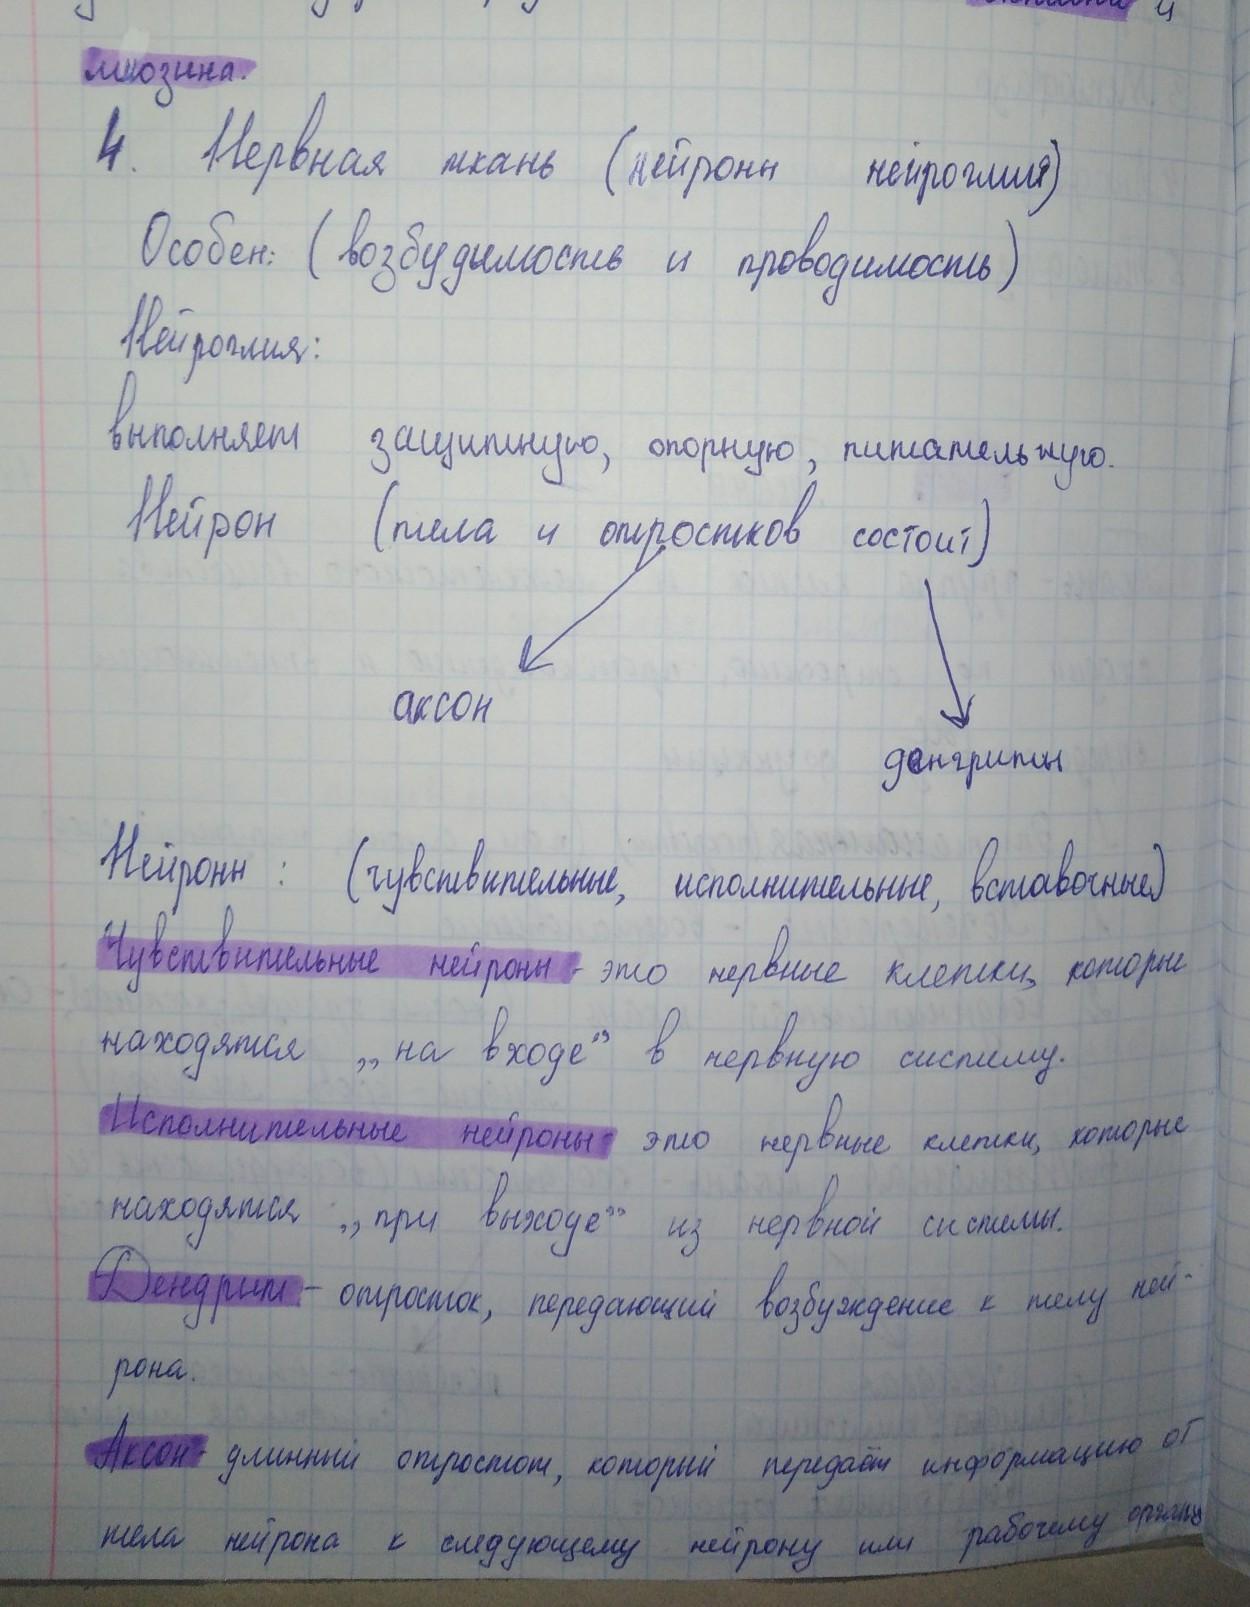 и
миозина.
4. Нервная ткань (нейроны нейроглия)
Особен: (возбудымость и проводимость)
Нейроглия:
выполняет защитную, опорную, питательную.
Нейрон (тела и отростков состоит)
аксон
денгриты
Нейроны : (чувствительные, исполнительные, вставочные)
Чувствительные нейроны - это нервные клетки, которые
находятся „на входе” в нервную систему.
Исполнительные нейроны - это нервные клетки, которые
находятся „при выходе” из нервной системы.
Дендрит - отросток, передающий возбуждение к телу ней-
рона.
Аксон - длинный отростот, который передаёт информацию от
тела нейрона к следующему нейрону или рабочему органу